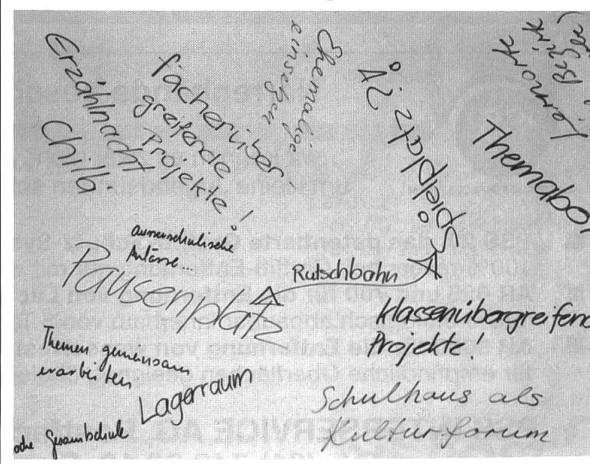 Erzählnacht
Chilla
fächerüber
greifende
Projekte!
Ehemalige
einsetzen
Spielplatz
Lernorte
Bezirk
Themabo
ausserschulische
Anlässe...
Pausenplatz
Rutschbahn
klassenübergreifend
Projekte!
Themen gemeinsam
erarbeiten
Lagerraum
Schulhaus als
Kulturforum
Gesamtschule